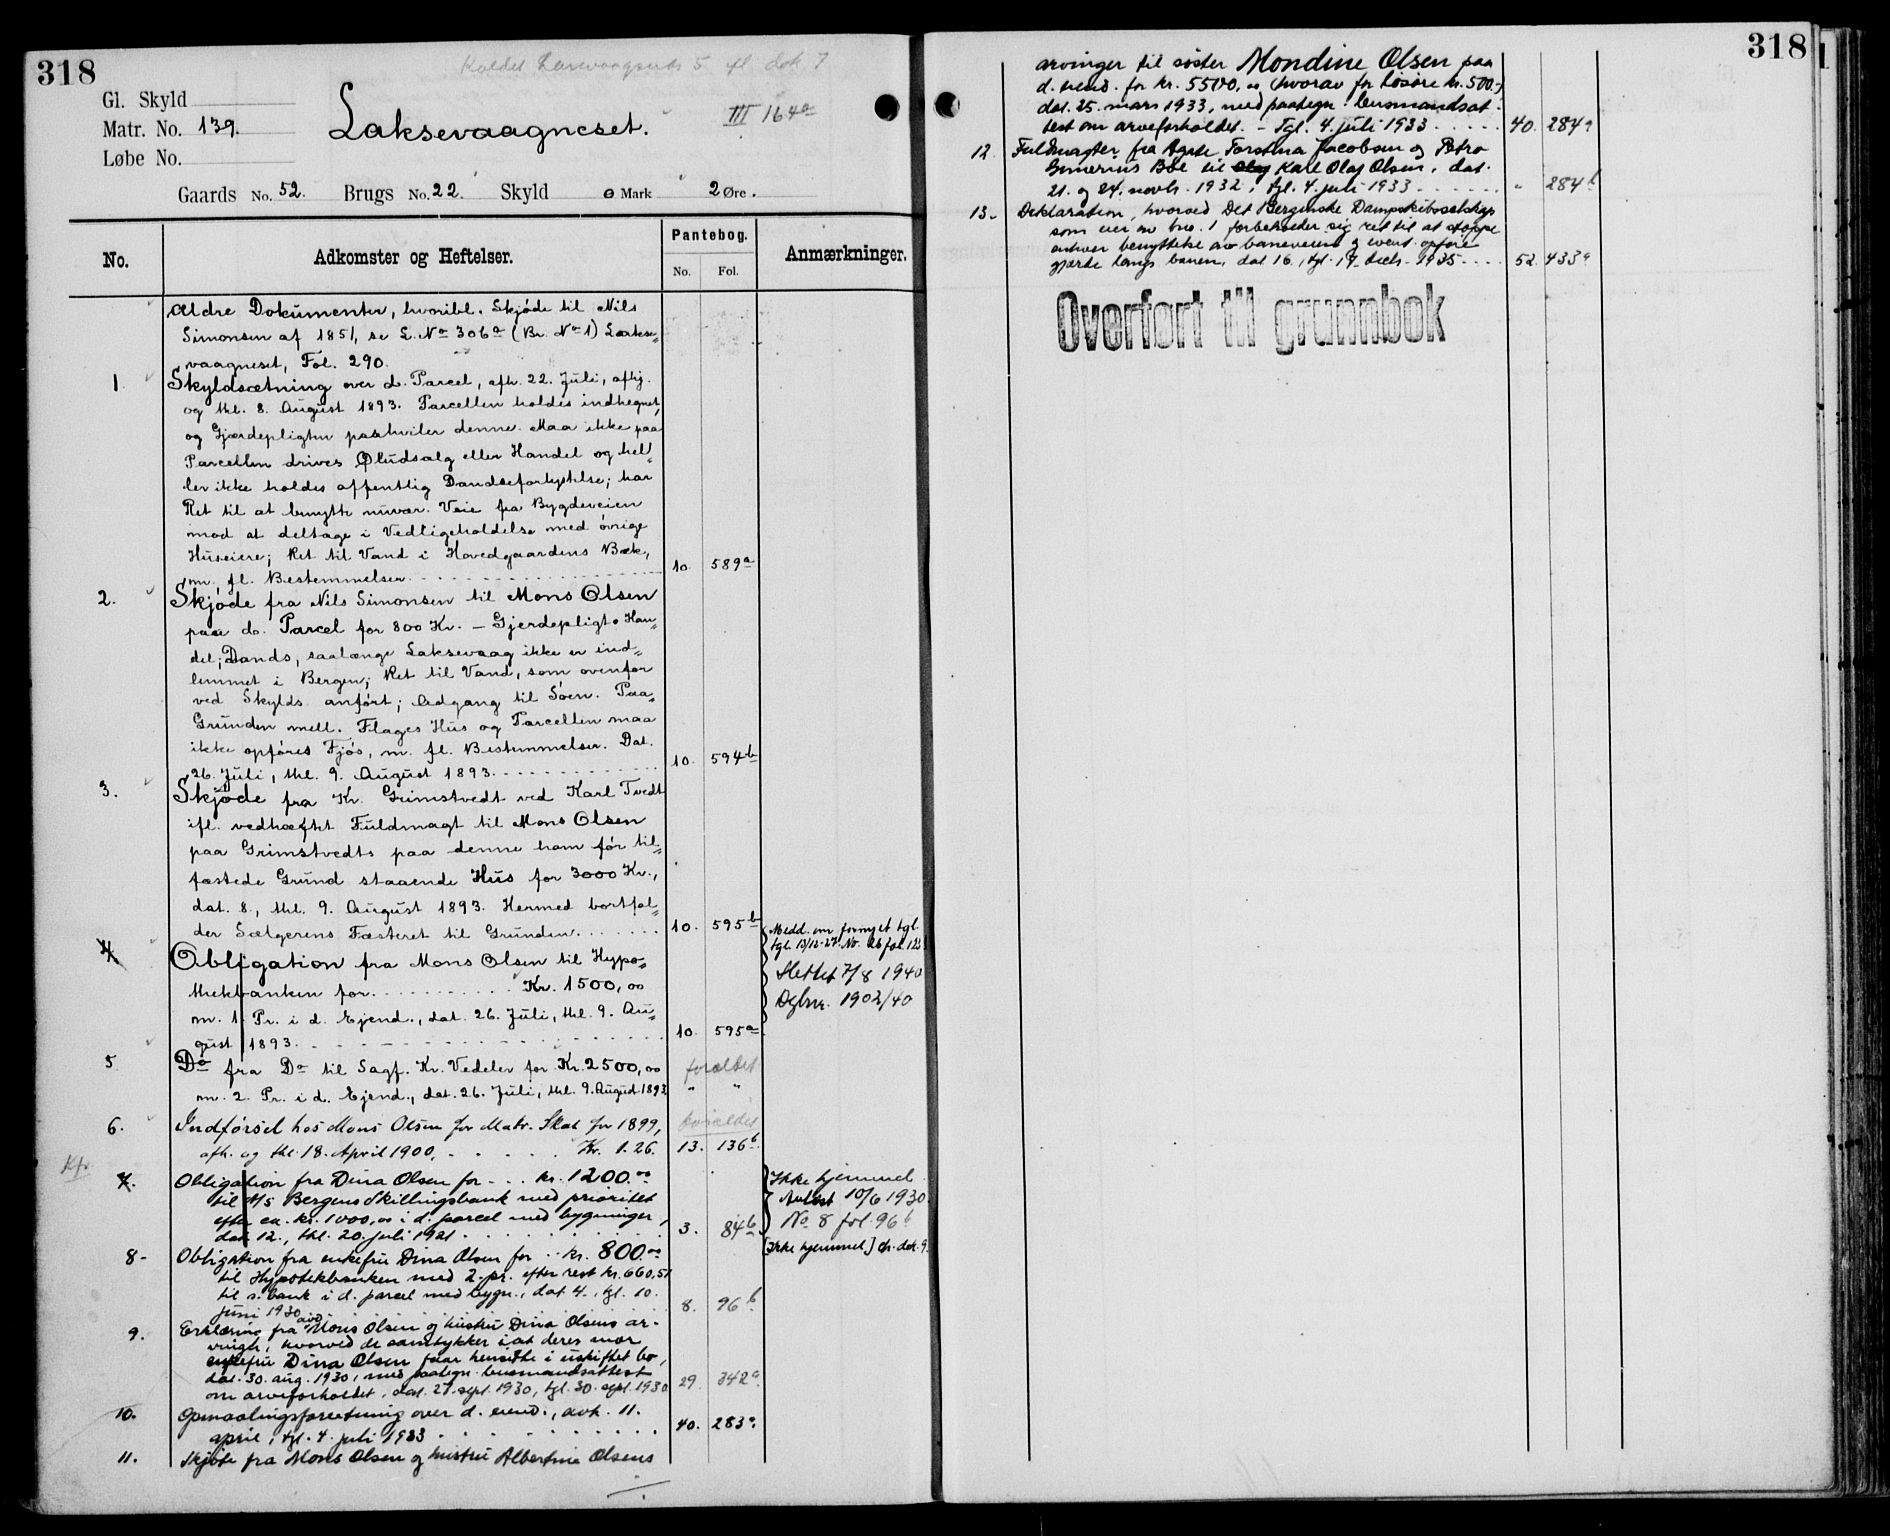 318
Kaldet Laxevaagnæs 5 ifl dok. 7
Gl. Skyld
Matr. No. 139.
Løbe No.
Laksevaagneset.
III 164a
Gaards No. 52. Brugs No. 22. Skyld 0 Mark 2 Øre.
No. Adkomster og Heftelser. Pantebog. No. Fol. Anmærkninger.
Ældre Dokumenter, hvoribl. Skjøde til Nils
Simonsen af 1851, se L. No 306a (Br. No 1) Lakse„
vaagneset, Fol. 290.
1. Skyldsætning over d. Parcel, afh. 22. Juli, afhj.
og thl. 8. August 1893. Parcellen holdes indhegnet,
og Gjærdepligten paahviler denne. Maa ikke paa
Parcellen drives Øludsalg eller Handel og hel„
ler ikke holdes offentlig Dandseforlystelse; har
Ret til at benytte nuvær. Veie fra Bygdeveien
mod at deltage i Vedligeholdelse med øvrige
Huseiere; Ret til Vand i Hovedgaardens Bæk,
m. fl. Bestemmelser. 10. 589a
2. Skjøde fra Nils Simonsen til Mons Olsen
paa do. Parcel for 800 Kr. — Gjerdepligt. Han„
del; Dands, saalænge Laksevaag ikke er ind„
lemmet i Bergen; Ret til Vand, som ovenfor
ved Skylds. anført; Adgang til Søen. Paa„
Grunden mell. Flages Hus og Parcellen maa
ikke opføres Fjøs, m. fl. Bestemmelser. Dat.
26. Juli, thl. 9. August 1893. 10. 594b
3. Skjøde fra Kr. Grimstvedt ved Karl Tvedt
ifl. vedhæftet Fuldmagt til Mons Olsen
paa Grimstvedts paa denne ham før til„
fæstede Grund staaende Hus for 3000 Kr.,
dat. 8., thl. 9. August 1893. Hermed bortfal„
der Sælgerens Fæsteret til Grunden. 10. 595b
4. Obligation fra Mons Olsen til Hypo„
thekbanken for Kr. 1500,00
m. 1. Pr. i d. Ejend., dat. 26. Juli, thl. 9. Au„
gust 1893. 10. 595a
Medd. om fornyet tgl.
tgl. 13/12-27. No. 26 fol. 123
Slettet 7/8 1940
Dgbnr. 1902/40
5 Do fra Do til Sagf. Kr. Vedeler for Kr. 2500,00 forældet
m. 2. Pr. i d. Ejend., dat. 26. Juli, thl. 9. August 1893 „ „
6. Indførsel hos Mons Olsen for Matr. Skat for 1899, forældet
afh. og thl. 18. April 1900, Kr. 1.26. 13. 136b
7. Obligation fra Dina Olsen for kr. 1200.00
til A/S Bergens Skillingsbank med prioritet
efter ca. kr. 1000,00 i d. parcel med bygninger,
dat. 12., thl. 20. juli 1921 3. 84b
Ikke hjemmel
Avlest 10/6 1930.
No. 8 fol. 96b
8- Obligation fra enkefru Dina Olsen for kr. 800.00 [Ikke hjemmel] cfr. dok. 9.
til Hypotekbanken med 2. pr. efter rest kr. 660,51
til s. bank i d. parcel med bygn., dat 4., tgl. 10.
juni 1930 8. 96b
9. Erklæring fra avd. Mons Olsen og hustru Dina Olsens ar-
vinger, hvorved de samtykker i at deres mor
enkefru Dina Olsen faar hensitte i uskiftet bo,
dat. 30. aug. 1930, med paategn. lensmandsattest
om arveforholdet, dat. 27. sept. 1930, tgl. 30. sept. 1930 29. 342a
10. Opmaalingsforretning over d. eiend., avh. 11.
april, tgl. 4. juli 1933 40. 283a
11. Skjøte fra Mons Olsen og hustru Albertine Olsens
318
arvinger til søster Mondine Olsen paa
d. eiend. for kr. 5500,00 (hvorav for løsøre kr. 500.-)
dat. 25. mars 1933, med paategn. lensmandsat-
test om arveforholdet. - Tgl. 4. juli 1933 40. 284a
12. Fuldmagter fra Agate Torstina Jacobsen og Petra
Gunerius Bøe til Olaf Karl Olaf Olsen, dat.
21. og 24. novb. 1932, tgl. 4. juli 1933 „ 284b
13- Deklaration, hvorved Det Bergenske Dampskibsselskap
som eier av bno. 1 forbeholder sig ret til at stoppe
enhver benyttelse av baneveien og event. opføre
gjærde langs banen, dat 16., tgl. 17. decb. 1935 52. 433a
Overført til grunnbok